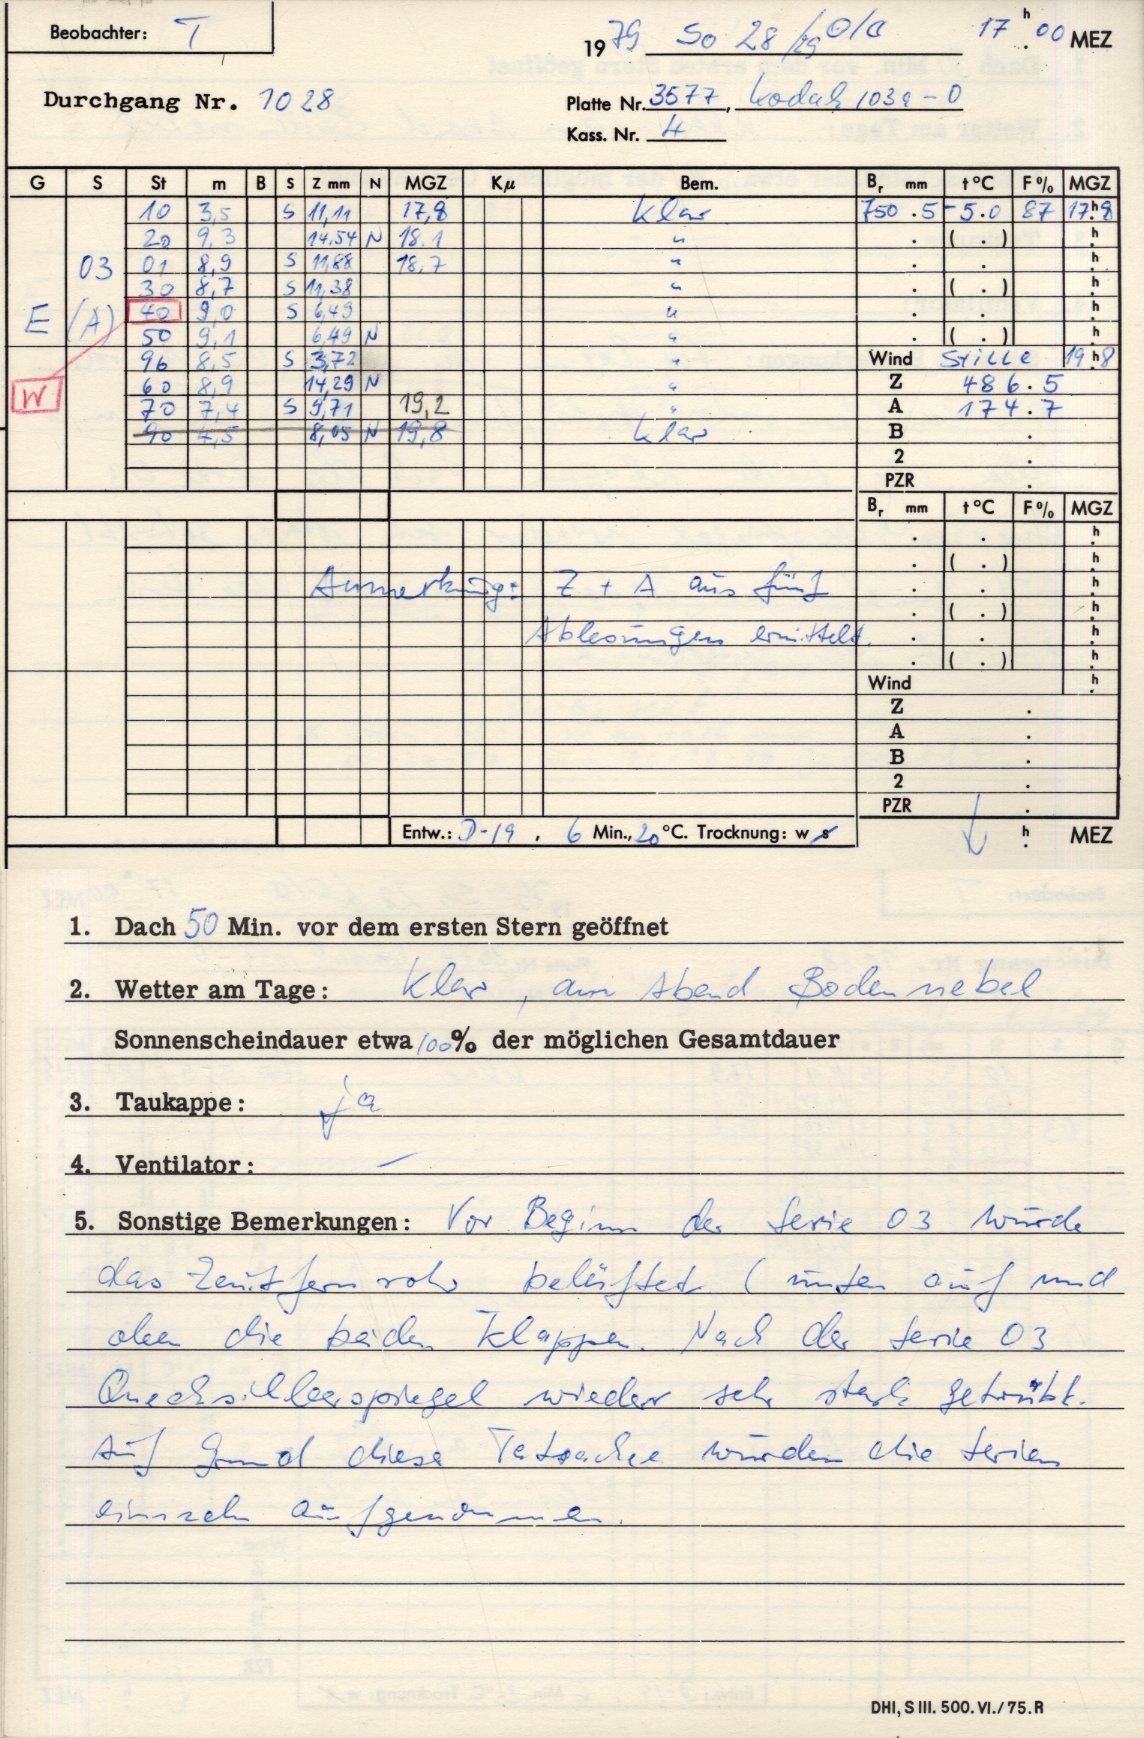 Beobachter: T
1979 So 28/29 17 h 00 MEZ
Durchgang Nr. 1028
Platte Nr. 3577, Kodak 103a-O
Kass. Nr. 4
G S St m B S Z mm N MGZ Kµ Bem. Br mm t°C F% MGZ
10 3,5 S 11,11 17,8 klar 750.5 -5.0 87 17h8
20 9,3 14,54 N 18.1 " . ( . ) h
03 01 8,9 S 11,88 18,7 " . . h
30 8,7 S 11,38 " . ( . ) h
E (A) 40 9,0 S 6,49 " . . h
50 9,1 6,49 N " . ( . ) h
96 8,5 S 3,72 " Wind Stille 19h8
W 60 8,9 14,29 N " Z 486.5
70 7,4 S 9,71 19,2 " A 174.7
90 4,5 8,05 N 19,8 klar B .
2 .
PZR .
Br mm t°C F% MGZ
. . h
. ( . ) h
Anmerkung: Z + A aus fünf . . h
. ( . ) h
Ablesungen ermittelt. . . h
. ( . ) h
Wind h
Z .
A .
B .
2 .
PZR .
Entw.: D-19, 6 Min., 20°C. Trocknung: w s h MEZ
1. Dach 50 Min. vor dem ersten Stern geöffnet
2. Wetter am Tage: Klar, am Abend Bodennebel
Sonnenscheindauer etwa 100% der möglichen Gesamtdauer
3. Taukappe: ja
4. Ventilator: –
5. Sonstige Bemerkungen: Vor Beginn der Serie 03 wurde
das Zenitfernrohr belüftet (unten auf und
oben die beiden Klappen. Nach der Serie 03
Quecksilberspiegel wieder sehr stark getrübt.
Auf Grund diese Tatsache wurden die Serien
einzeln aufgenommen.
DHI, S III. 500. VI./75. R